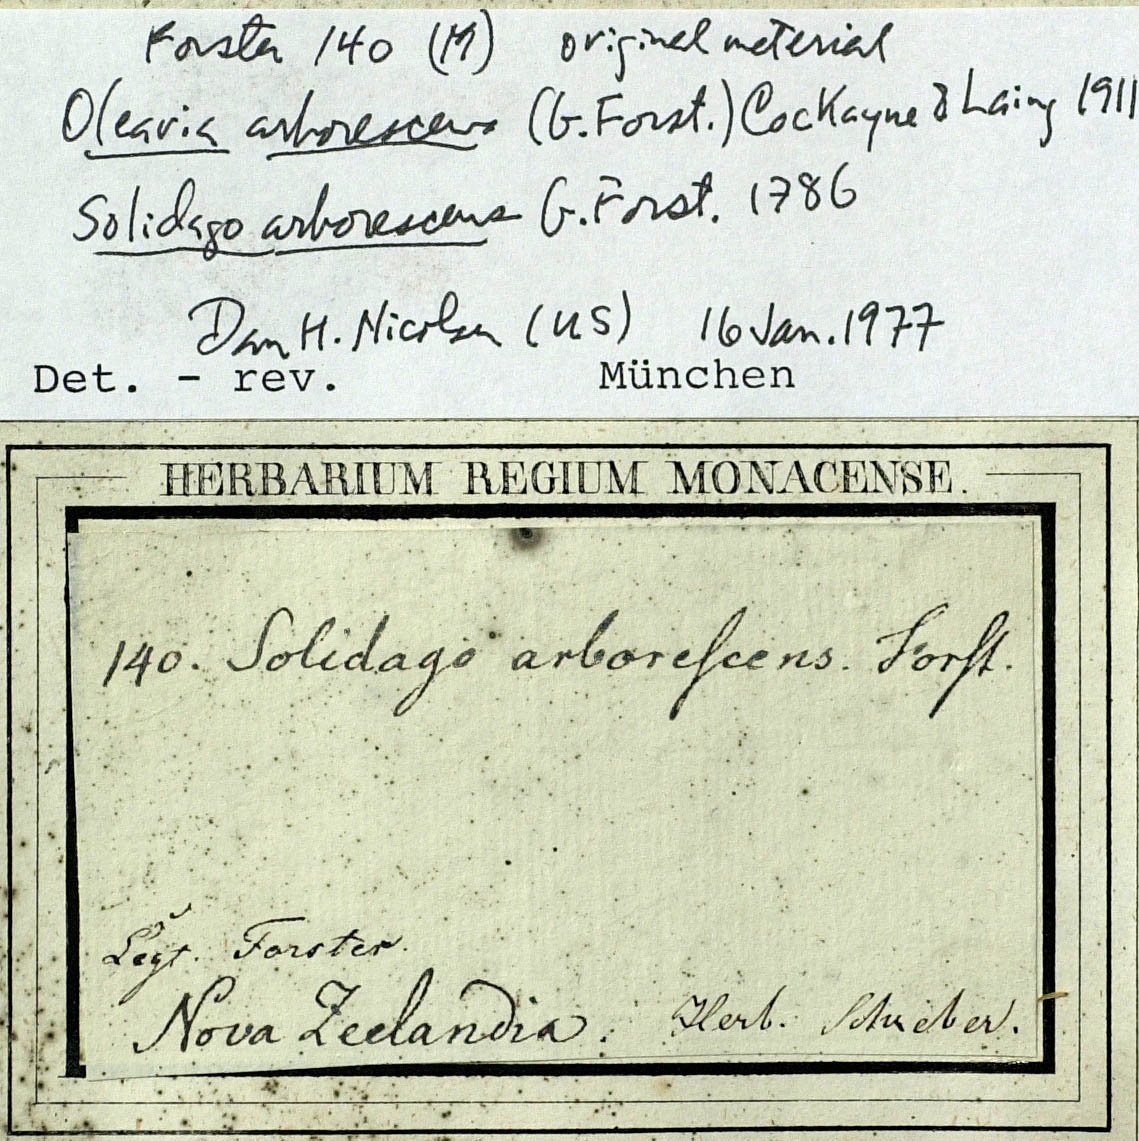 Forster 140 (M) original material
Olearia arborescens (G.Forst.) Cockayne & Laing 1911
Solidago arborescens G.Forst. 1786
Dan H. Nicolson (US) 16 Jan. 1977
Det. - rev. München
HERBARIUM REGIUM MONACENSE.
140. Solidago arborescens. Forst.
Legt. Forster.
Nova Zeelandia. Herb. Schreber.